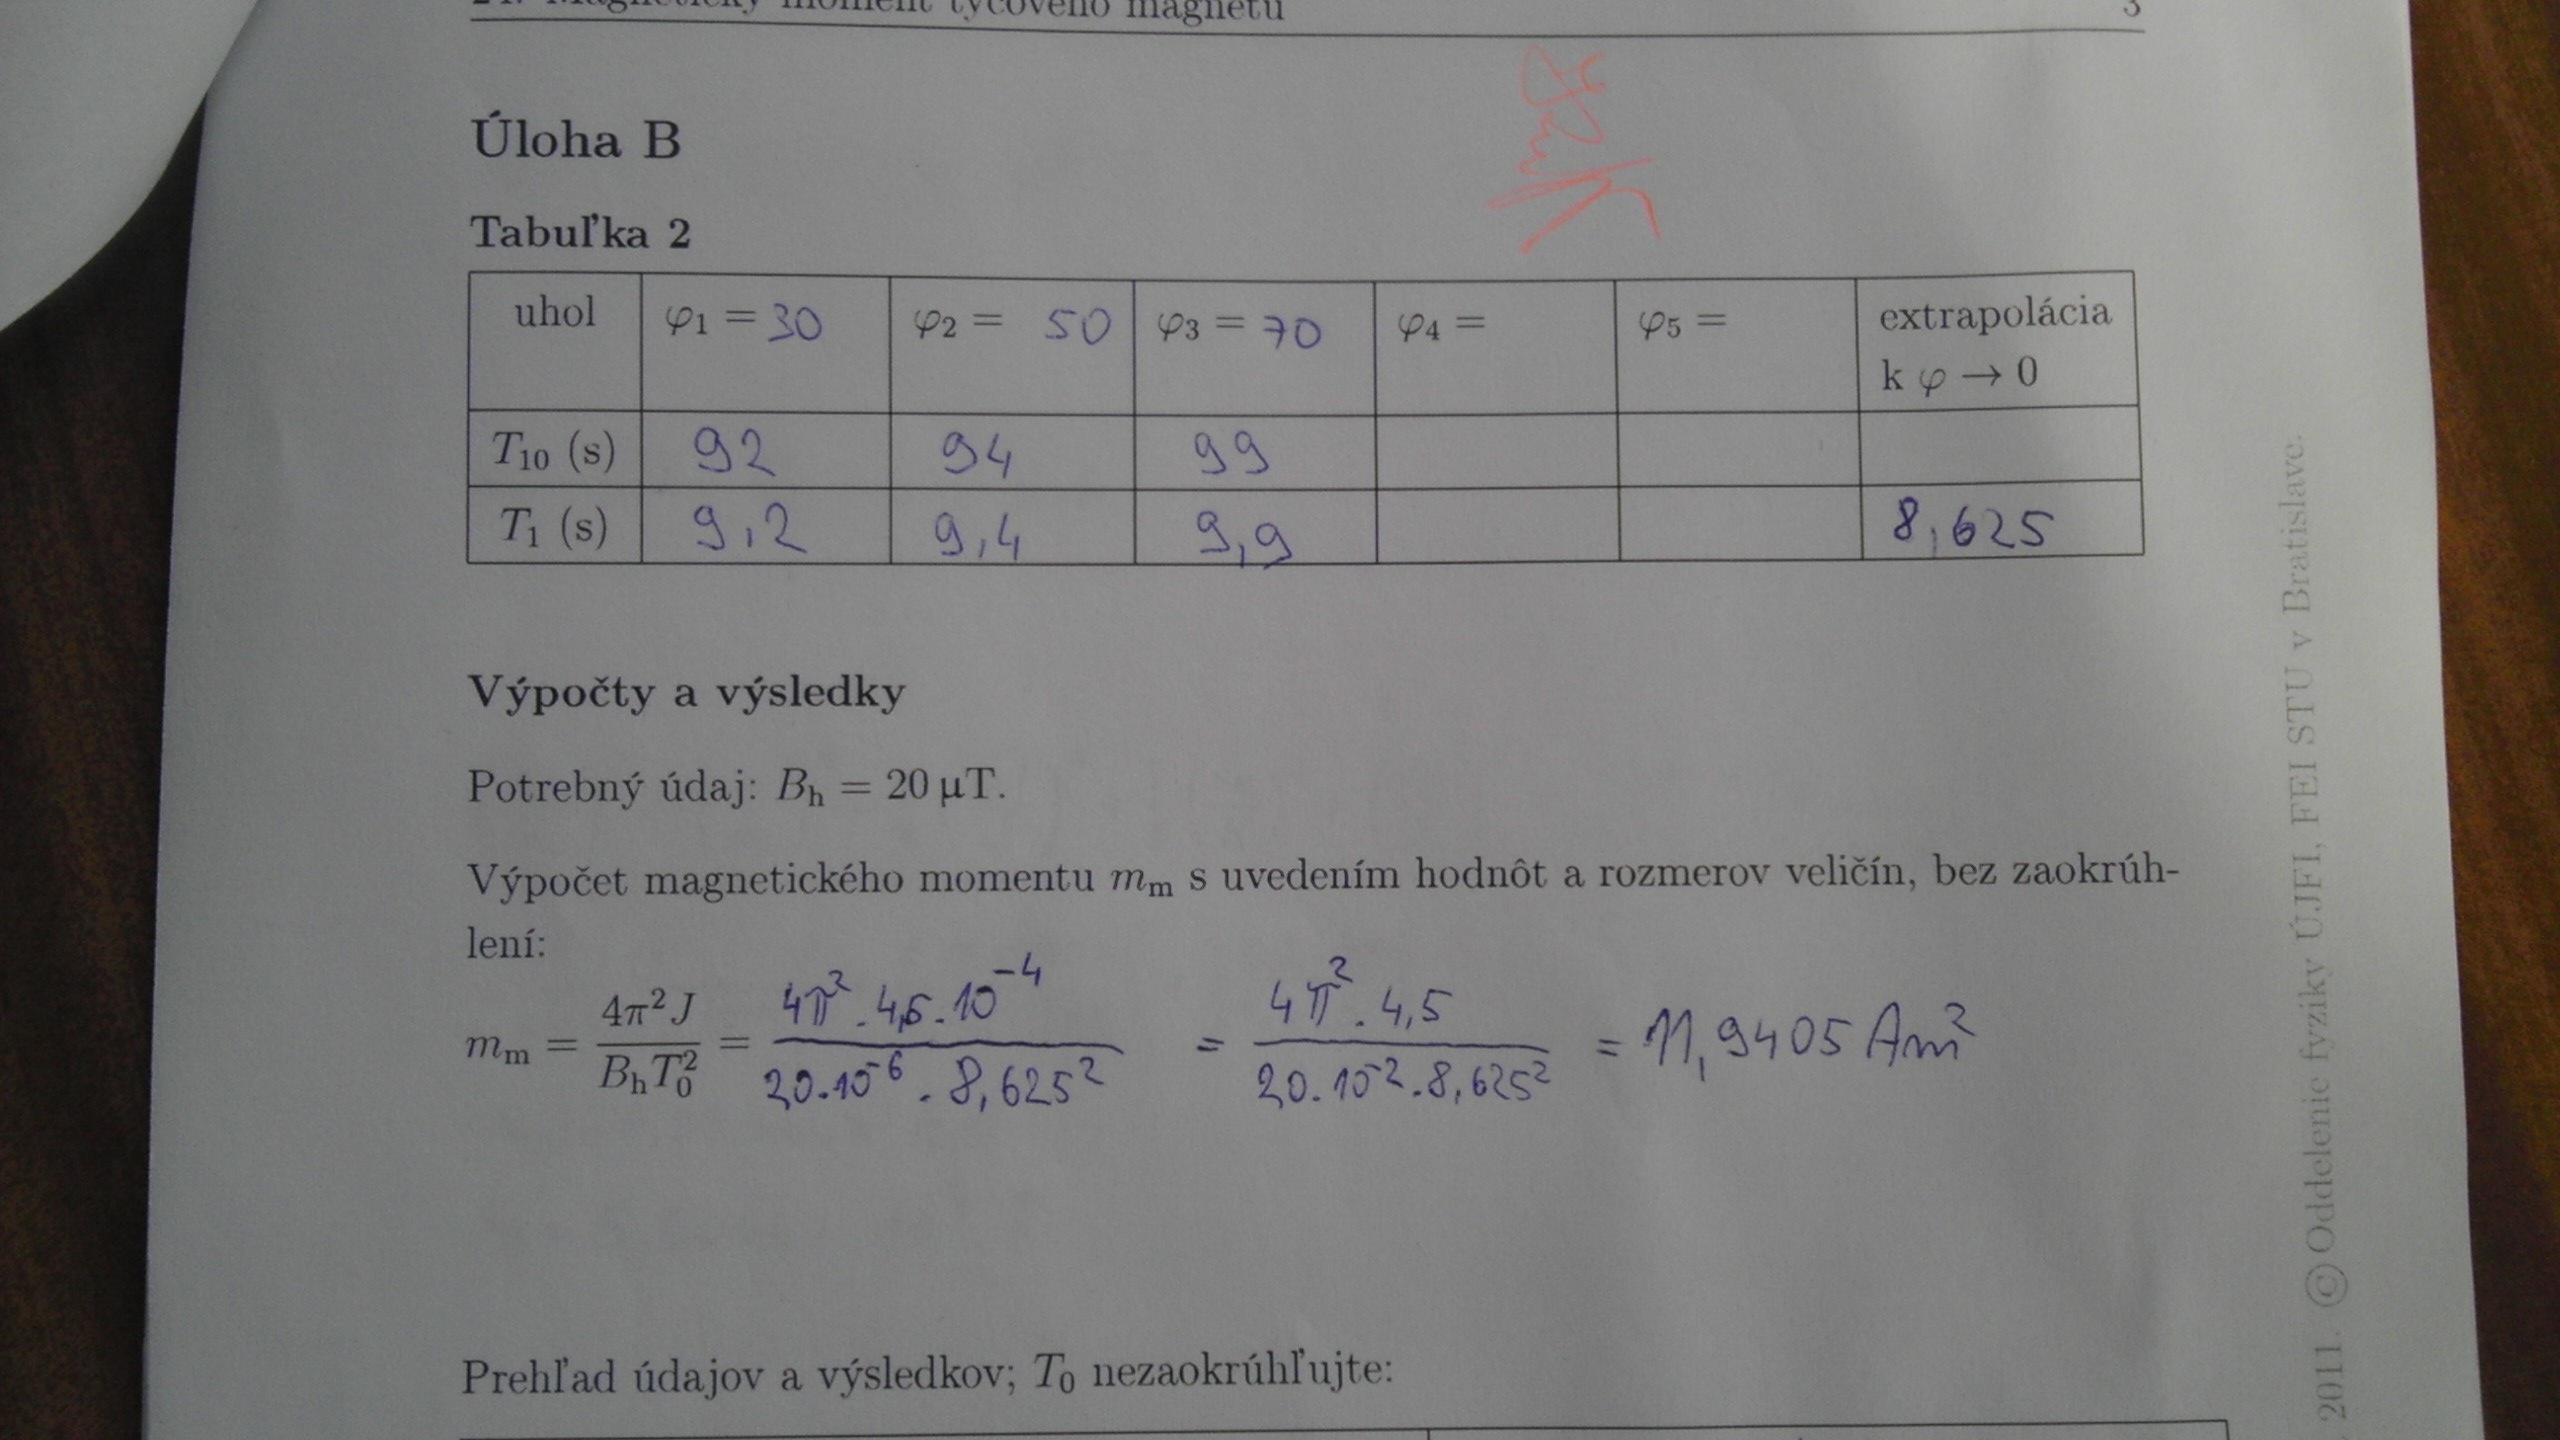 24. Magnetický moment tyčového magnetu 3
Úloha B
Tabuľka 2
uhol φ1 = 30 φ2 = 50 φ3 = 70 φ4 = φ5 = extrapolácia
k φ → 0
T10 (s) 92 94 99
T1 (s) 9,2 9,4 9,9 8,625
Výpočty a výsledky
Potrebný údaj: Bh = 20 μT.
Výpočet magnetického momentu mm s uvedením hodnôt a rozmerov veličín, bez zaokrúh-
lení:
mm = 4π²J / BhT0² = 4π² . 4,5 . 10⁻⁴ / 20 . 10⁻⁶ . 8,625² = 4π² . 4,5 / 20 . 10⁻² . 8,625² = 11,9405 Am²
Prehľad údajov a výsledkov; T0 nezaokrúhľujte:
2011. © Oddelenie fyziky ÚJFI, FEI STU v Bratislave.